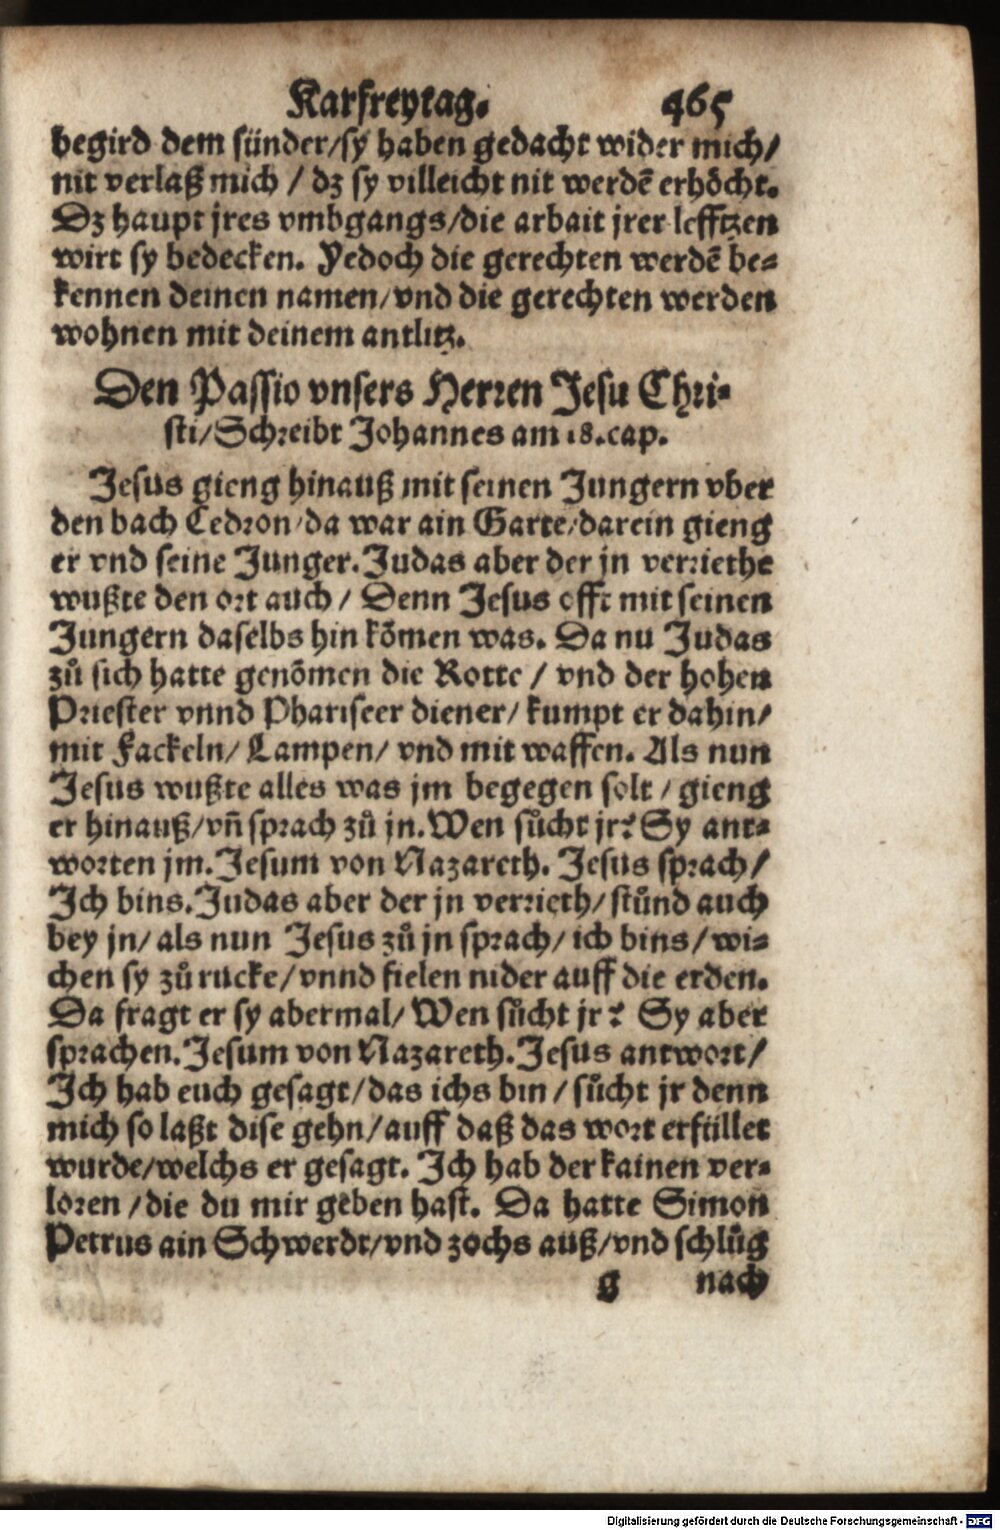 Karfreytag. 465
begird dem sünder/sy haben gedacht wider mich/
nit verlaß mich / dz sy villeicht nit werdē erhöcht.
Dz haupt jres vmbgangs/die arbait jrer lefftzen
wirt sy bedecken. Yedoch die gerechten werdē be⸗
kennen deinen namen/vnd die gerechten werden
wohnen mit deinem antlitz.
Den Passio vnsers Herren Jesu Chri⸗
sti/Schreibt Johannes am 18.cap.
Jesus gieng hinauß mit seinen Jungern vber
den bach Cedron/da war ain Garte/darein gieng
er vnd seine Junger. Judas aber der jn verriethe
wußte den ort auch / Denn Jesus offt mit seinen
Jungern daselbs hin kōmen was. Da nu Judas
zů sich hatte genōmen die Rotte / vnd der hohen
Priester vnnd Phariseer diener/ kumpt er dahin/
mit Fackeln/ Lampen/ vnd mit waffen. Als nun
Jesus wußte alles was jm begegen solt / gieng
er hinauß/vñ sprach zů jn. Wen sůcht jr? Sy ant⸗
worten jm. Jesum von Nazareth. Jesus sprach/
Ich bins. Judas aber der jn verrieth/ stůnd auch
bey jn/ als nun Jesus zů jn sprach/ ich bins/ wi⸗
chen sy zů rucke/ vnnd fielen nider auff die erden.
Da fragt er sy abermal/ Wen sůcht jr? Sy aber
sprachen. Jesum von Nazareth. Jesus antwort/
Ich hab euch gesagt/das ichs bin / sůcht jr denn
mich so laßt dise gehn/auff daß das wort erfüllet
wurde/welchs er gesagt. Ich hab der kainen ver⸗
loren /die du mir geben hast. Da hatte Simon
Petrus ain Schwerdt/vnd zochs auß/vnd schlůg
g nach
Digitalisierung gefördert durch die Deutsche Forschungsgemeinschaft - DFG